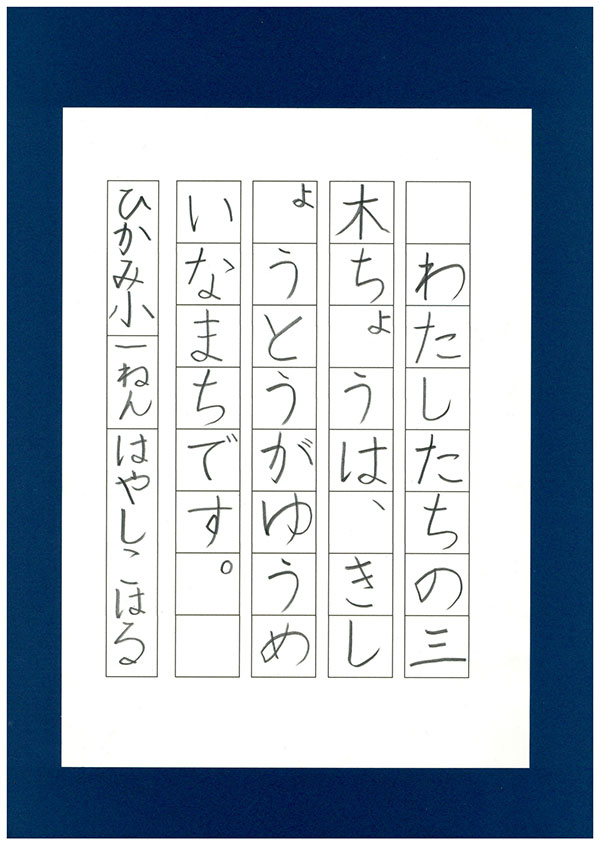 わたしたちの三
木ちょうは、きし
ょうとうがゆうめ
いなまちです。
ひかみ小一ねんはやしこはる